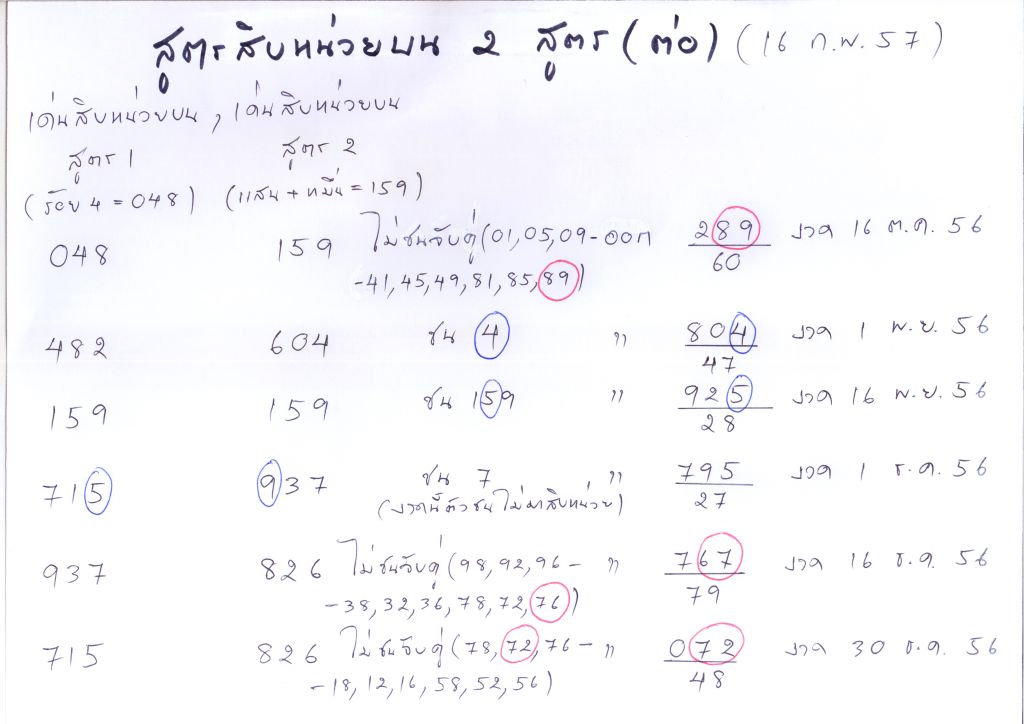 สูตรสิบหน่วยบน 2 สูตร (ต่อ) (16 ก.พ. 57)
เด่นสิบหน่วยบน , เด่นสิบหน่วยบน
สูตร 1 สูตร 2
(ร้อย 4 = 048) (แสน + หมื่น = 159)
048 159 ไม่ชนจับคู่ (01, 05, 09 - ออก 289 งวด 16 ต.ค. 56
-41, 45, 49, 81, 85, 89) 60
482 604 ชน 4 " 804 งวด 1 พ.ย. 56
47
159 159 ชน 159 " 925 งวด 16 พ.ย. 56
28
715 937 ชน 7 " 795 งวด 1 ธ.ค. 56
(งวดนี้ตัวชนไม่มาสิบหน่วย) 27
937 826 ไม่ชนจับคู่ (98, 92, 96 - " 767 งวด 16 ธ.ค. 56
-38, 32, 36, 78, 72, 76) 79
715 826 ไม่ชนจับคู่ (78, 72, 76 - " 072 งวด 30 ธ.ค. 56
-18, 12, 16, 58, 52, 56) 48